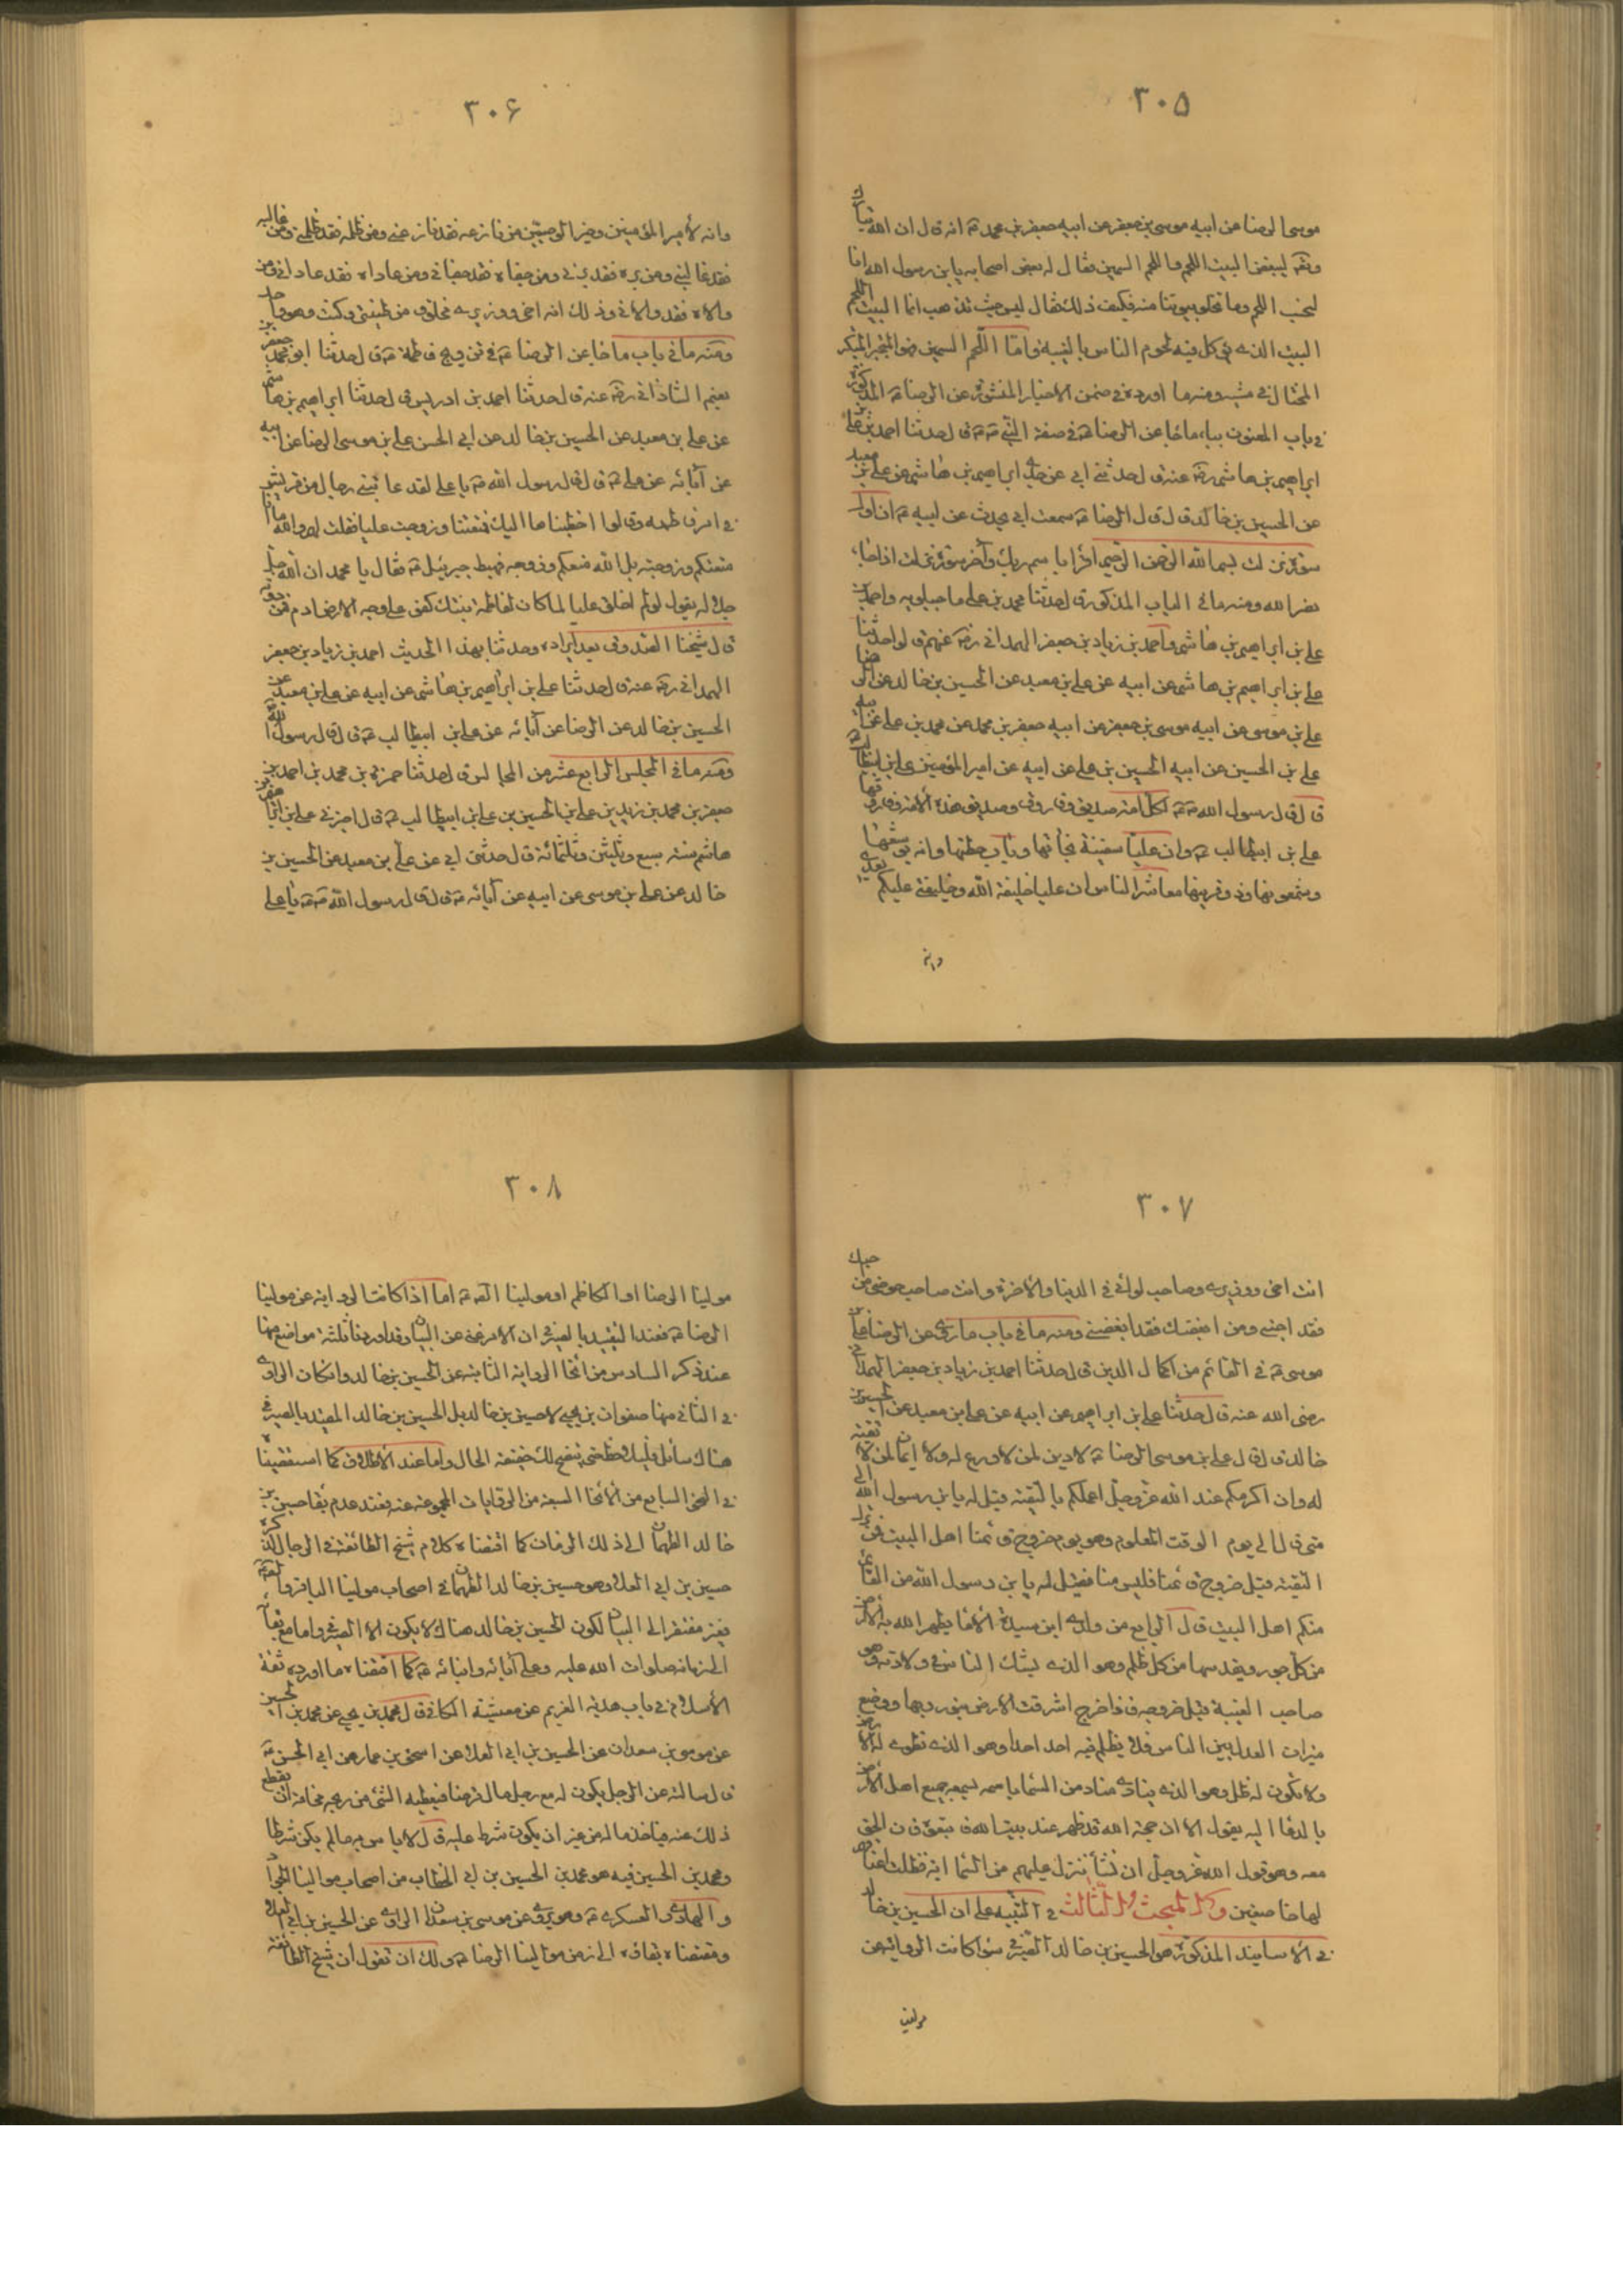 ٣٠٥
موسى الرضا عن ابيه موسى بن جعفر عن ابيه جعفر بن محمد ع انه قال ان الله تبارك
وتعه ليبغض البيت اللحم واللحم السمين فقال له بعض اصحابه يا بن رسول الله انا
لنحب اللحم وما تخلو بيوتنا منه فكيف ذلك فقال ليس حيث تذهب انما البيت اللحم
البيت الذى تؤكل فيه لحوم الناس بالغيبة واما اللحم السمين فهو المتجبر المتكبر
المختال فى مشيه ومنه ما اورده فى ضمن الاخبار المنثورة عن الرضا ع المذكورة
فى باب المعنون بباب ما جاء عن الرضا ع فى صفة النبى ص قال حدثنا احمد بن على بن
ابراهيم بن هاشم رضه عنه قال حدثنى ابى عن جدى ابراهيم بن هاشم عن على بن معبد
عن الحسين بن خالد قال قال الرضا ع سمعت ابى يحدث عن ابيه ع ان اول
سورة نزلت بسم الله الرحمن الرحيم اقرأ باسم ربك وآخر سورة نزلت اذا جاء
نصر الله ومنه ما فى الباب المذكور قال حدثنا محمد بن على ماجيلويه واحمد بن
على بن ابراهيم بن هاشم واحمد بن زياد بن جعفر الهمدانى رضه عنهم قالوا حدثنا
على بن ابراهيم بن هاشم عن ابيه عن على بن معبد عن الحسين بن خالد عن الرضا
على بن موسى عن ابيه موسى بن جعفر عن ابيه جعفر بن محمد عن محمد بن على عن ابيه
على بن الحسين عن ابيه الحسين بن على عن ابيه عن امير المؤمنين على بن ابيطالب ع
قال قال رسول الله ص لكل امة صديق وفاروق وصديق هذه الامة وفاروقها
على بن ابيطالب ع وان عليا سفينة نجاتها وباب حطتها وانه يوشعها
وشمعونها وذو قرنيها معاشر الناس ان عليا خليفة الله وخليفتى عليكم بعدى
وانه
٣٠۶
وانه لأمير المؤمنين وخير الوصيين من نازعه فقد نازعنى ومن ظلمه فقد ظلمنى ومن غالبه
فقد غالبنى ومن بره فقد برنى ومن جفاه فقد جفانى ومن عاداه فقد عادانى ومن
والاه فقد والانى وذلك انه اخى ووزيرى ومخلوق من طينتى وكنت وهو واحد
ومنه ما فى باب ما جاء عن الرضا ع فى تزويج فاطمة ع قال حدثنا ابو محمد جعفر بن
نعيم الشاذانى رضه عنه قال حدثنا احمد بن ادريس قال حدثنا ابراهيم بن هاشم
عن على بن معبد عن الحسين بن خالد عن ابى الحسن على بن موسى الرضا عن ابيه
عن آبائه عن على ع قال قال رسول الله ص يا على لقد عاتبنى رجال من قريش
فى امر فاطمه وقالوا خطبناها اليك فمنعتنا وزوجت عليا فقلت لهم والله ما انا
منعتكم وزوجته بل الله منعكم وزوجه فهبط جبرئيل ع فقال يا محمد ان الله جل
جلاله يقول لو لم اخلق عليا لما كان لفاطمة ابنتك كفو على وجه الارض ادم فمن دونه
قال شيخنا الصدوق بعد ايراده وحدثنا بهذا الحديث احمد بن زياد بن جعفر
الهمدانى رضه عنه قال حدثنا على بن ابراهيم بن هاشم عن ابيه عن على بن معبد عن
الحسين بن خالد عن الرضا عن آبائه عن على بن ابيطالب ع قال قال رسول الله
ومنه ما فى المجلس الرابع عشر من المجالس قال حدثنا حمزة بن محمد بن احمد بن
جعفر بن محمد بن زيد بن على بن الحسين بن على بن ابيطالب ع قال اخبرنى على بن ابراهيم بن
هاشم سنة سبع وثلثين وثلثمائة قال حدثنى ابى عن على بن معبد عن الحسين بن
خالد عن على بن موسى عن ابيه عن آبائه ع قال قال رسول الله ص يا على
٣٠٧
انت اخى ووزيرى وصاحب لوائى فى الدنيا والاخرة وانت صاحب حوضى من احبك
فقد احبنى ومن ابغضك فقد ابغضنى ومنه ما فى باب ما روى عن الرضا على بن
موسى ع فى القائم من اكمال الدين قال حدثنا احمد بن زياد بن جعفر الهمدانى
رضى الله عنه قال حدثنا على بن ابراهيم عن ابيه عن على بن معبد عن الحسين بن
خالد قال قال على بن موسى الرضا ع لا دين لمن لا ورع له ولا ايمان لمن لا تقية
له وان اكرمكم عند الله عز وجل اعملكم بالتقية فقيل له يا بن رسول الله الى
متى قال الى يوم الوقت المعلوم وهو يوم خروج قائمنا اهل البيت فمن ترك
التقية قبل خروج قائمنا فليس منا فقيل له يا بن رسول الله من القائم
منكم اهل البيت قال الرابع من ولدى ابن سيدة الاماء يطهر الله به الارض
من كل جور ويقدسها من كل ظلم وهو الذى يشك الناس فى ولادته وهو
صاحب الغيبة قبل خروجه فاذا خرج اشرقت الارض بنور ربها ووضع
ميزان العدل بين الناس فلا يظلم فيه احد احدا وهو الذى تطوى له الارض
ولا يكون له ظل وهو الذى ينادى مناد من السماء باسمه يسمعه جميع اهل الارض
بالدعاء اليه يقول الا ان حجة الله قد ظهر عند بيت الله فاتبعوه فان الحق
معه وهو قول الله عز وجل ان نشأ ننزل عليهم من السماء اية فظلت اعناقهم
لها خاضعين وكل المبحث الثالث فى التنبيه على ان الحسين بن خالد
فى الاسانيد المذكورة هو الحسين بن خالد الصيرفى سواء كانت الرواية عن
مولينا
٣٠٨
مولينا الرضا او الكاظم او مولينا ع اما اذا كانت الرواية عن مولينا
الرضا ع فعند التقييد بالصيرفى ان الامر غنى عن البيان وقد اوردنا ثلثة مواضع منها
عند ذكر السادس من انحاء الرواية الثابتة عن الحسين بن خالد وان كان الراوى
فى الثانى منها صفوان بن يحيى لا حسين بن خالد بل الحسين بن خالد المقيد بالصيرفى
هناك سائل فليلاحظ حتى يتضح لك حقيقة الحال واما عند الاطلاق كما استقصينا
فى النحو السابع من الانحاء السبعة من الروايات المجموعة عنه فعند عدم بقاء حسين بن
خالد الطهمان الى ذلك الزمان كما اقتضاه كلام شيخ الطائفة فى الرجال لذكره
حسين بن ابى العلا وهو حسين بن خالد الطهمان فى اصحاب مولينا الباقر والصادق
فغير مفتقر الى البيان لكون الحسين بن خالد هناك لا يكون الا الصيرفى واما مع بقائه
الى زمانه صلوات الله عليه وعلى آبائه وابنائه ع كما اقتضاه ما اورده ثقة
الاسلام فى باب هدية الغريم عن معيشة الكافى قال محمد بن يحيى عن محمد بن الحسين
عن موسى بن سعدان عن الحسين بن ابى العلا عن اسحق بن عمار عن ابى الحسن ع
قال سالته عن الرجل يكون له مع رجل مال قرضا فيعطيه الشئ من ربحه مخافة ان يقطع
ذلك عنه فياخذ ماله من غير ان يكون شرط عليه قال لا باس به ما لم يكن شرطا
ومحمد بن الحسين فيه هو محمد بن الحسين بن ابى الخطاب من اصحاب موالينا الجواد
والهادى والعسكرى ع وهو يروى عن موسى بن سعدان الراوى عن الحسين بن ابى العلا
ومقتضاه بقائه الى زمن موالينا الرضا ع ولك ان تقول ان شيخ الطائفة